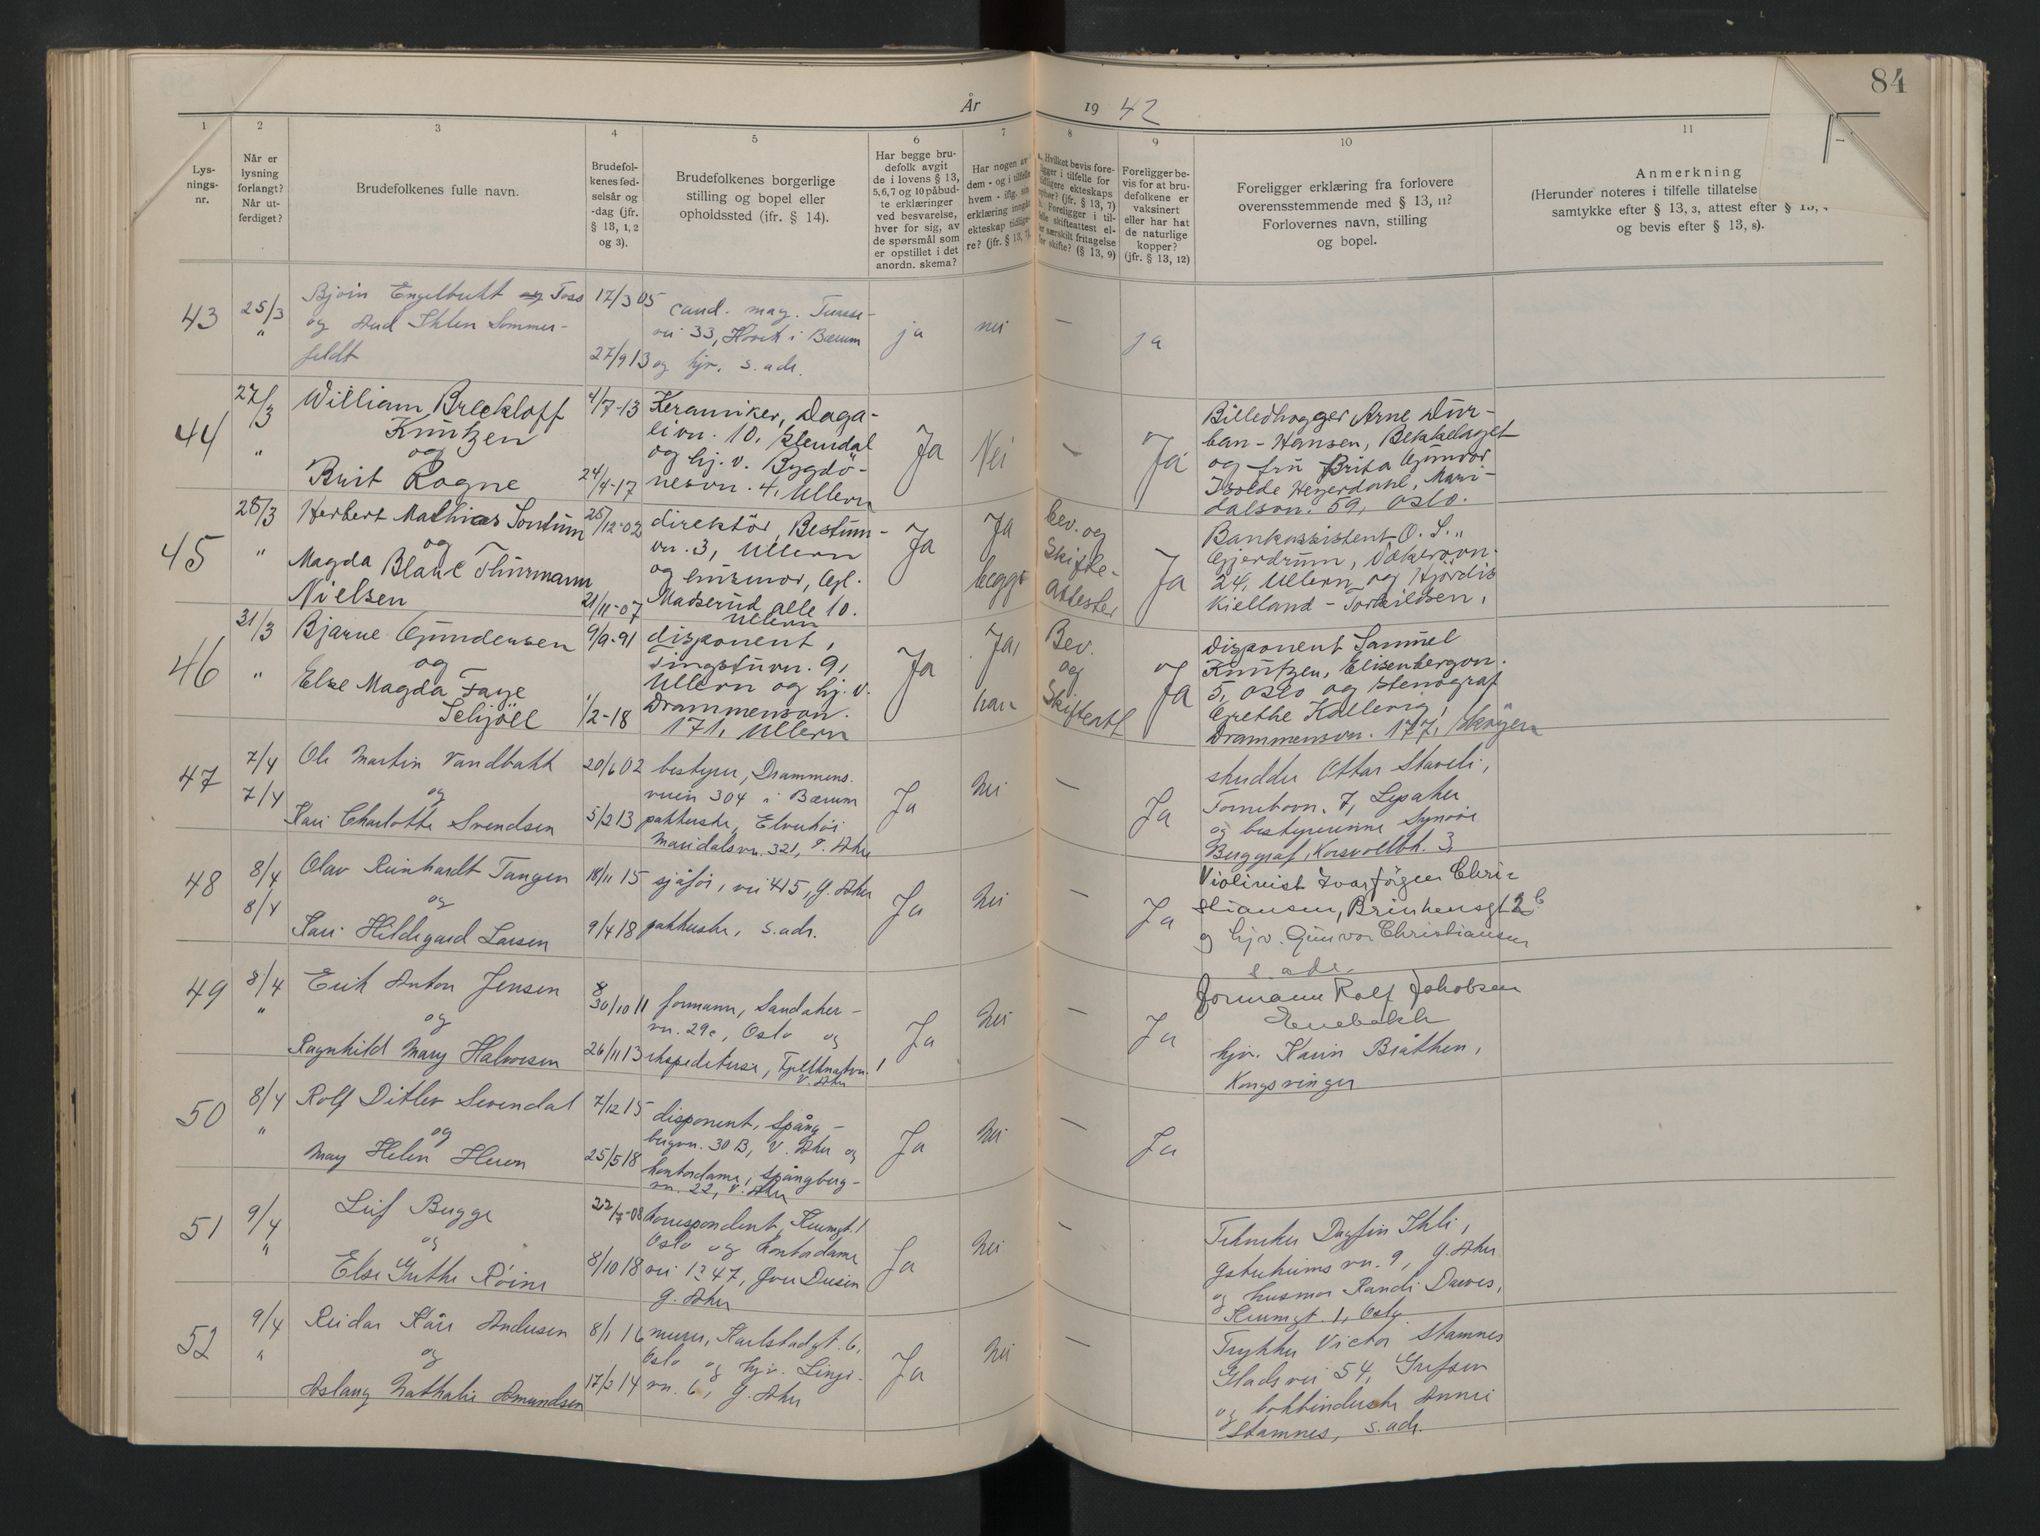 84
År 19 42
1 2 3 4 5 6 7 8 9 10 11
Lys-
nings-
nr.
Når er
lysning
forlangt?
Når ut-
ferdiget?
Brudefolkenes fulle navn.
Brudefol-
kenes fød-
selsår og
-dag (jfr.
§ 13, 1, 2
og 3).
Brudefolkenes borgerlige
stilling og bopel eller
opholdssted (ifr. § 14).
Har begge bru-
defolk avgit
de i lovens § 13,
5, 6, 7 og 10 påbud-
te erklæringer
ved besvarelse,
hver for sig, av
de spørsmål som
er opstillet i det
anordn. skema?
Har nogen av
dem - og i tilfelle
hvem - iflg. sin
erklæring inngått
ekteskap tidlige-
re? (jfr. § 13, 7).
a. Hvilket bevis fore-
ligger i tilfelle for
tidligere ekteskaps
ophør? (jfr. § 13, 7)
b. Foreligger i til-
felle skifteattest el-
ler særskilt fritagelse
for skifte? (§ 13, 9)
Foreligger be-
vis for at bru-
defolkene er
vaksinert
eller har hat
de naturlige
kopper?
(jfr. § 13, 12)
Foreligger erklæring fra forlovere
overensstemmende med § 13, 11?
Forlovernes navn, stilling
og bopel.
Anmerkning
(Herunder noteres i tilfelle tillatelse
samtykke efter § 13, 3, attest efter § 13,
og bevis efter § 13, 8).
43
25/3
"
Bjørn Engelbrett og Foss
og Aud Ihlen Sommer-
feldt
17/3 05
27/9 13
cand. mag.
vei 33, Høvik i Bærum
og hjv. s. adr.
ja
nei
—
ja
44
27/3
"
William Breckloff
Knutzen
og
Brit Rogne
4/7-13
24/4-17
Keramiker, Daga-
livn. 10, Slemdal
og hj. v. Bygdö-
nesvn. 4, Ullern
Ja
Nei
—
Ja
Billedhogger Arne Dur-
ban-Hansen, Bekkelaget
og fru Brita Gunvor
Isolde Heyerdahl, Mari-
dalsvn. 59, Oslo.
45
28/3
"
Herbert Mathias Sontum
og
Magda Blanc Thurmann
Nielsen
25/12-02
21/11-07
direktör, Bestum-
vn. 3, Ullern
og husmor, Ggl.
Madserud alle 10.
Ullern
Ja
Ja
begge
Bev. og
Skifte-
attester
Ja
Bankassistent O. S.
Gjerdrum, Vækerøvn.
24, Ullern og Hjördis
Kielland-Torkildsen,
46
31/3
"
Bjarne Gundersen
og
Else Magda Faye
Schjöll
9/9-91
1/2-18
disponent,
Tingstuvn. 9,
Ullern og hj. v.
Drammensvn.
171, Ullern
Ja
Ja,
han
Bev.
og
Skifteatt
Ja
Disponent Samuel
Knutzen, Elisenbergvn.
5, Oslo og stenograf
Grethe Kallevig,
Drammensvn. 177, Sköyen
47
7/4
7/4
Ole Martin Vandbakk
og
Kari Charlotte Svendsen
20/6 02
5/2 13
bestyrer, Drammens-
veien 304 i Bærum
pakkerske, Elverhöi
Maridalsvn. 321, V. Aker
Ja
Nei
—
Ja
Ottar Staveli,
7, Lysaker
og bestyrerinne Synnöve
Berggraf, Korsvollbk. 3,
48
8/4
8/4
Olav Reinhardt Tangen
og
Kari Hildegard Larsen
18/11 15
9/4 18
sjåför, vei 415, Ø. Aker
pakkerske, s. adr.
Ja
Nei
—
Ja
Violinist Ivar Jörgen Chri-
stiansen, Brinkensgt 2 C
og hjv. Gunvor Christiansen
s. adr.
49
8/4
"
Erik Anton Jensen
og
Ragnhild Mary Halvorsen
30/10 11
26/11 13
formann, Sandaker-
vn. 29c, Oslo og
ekspeditrise,
V. Aker
Ja
Nei
—
Ja
Formann Rolf Jakobsen
Enebakk
hjv. Karin Bråthen,
Kongsvinger
50
8/4
"
Rolf Ditlev Svendal
og
May Helen Heien
7/12 15
25/5 18
disponent, Spång-
bergvn. 30 B, V. Aker og
kontordame, Spångberg-
vn. 22, V. Aker
Ja
Nei
—
Ja
51
9/4
"
Leif Bugge
og
Else Grethe Röine
22/7-08
8/10 18
korrespondent, Krumgt. 1
Oslo og kontordame
vei 1247,
Ø. Aker
Ja
Nei
—
Tekniker Dagfin Ihle,
Østreheims vn. 9, Ø. Aker
og husmor Randi Dawes,
Krumgt. 1, Oslo
52
9/4
"
Reidar Kåre Andersen
og
Aslaug Nathalie Amundsen
8/1 16
17/3 14
murer, Karlstadgt. 6,
Oslo og hjv. Linje-
vn. 6, Ø. Aker
Ja
Nei
—
Trykker Victor Stamnes
Glads vei 54, Grefsen
og bokbinderske Annie
Stamnes, s. adr.